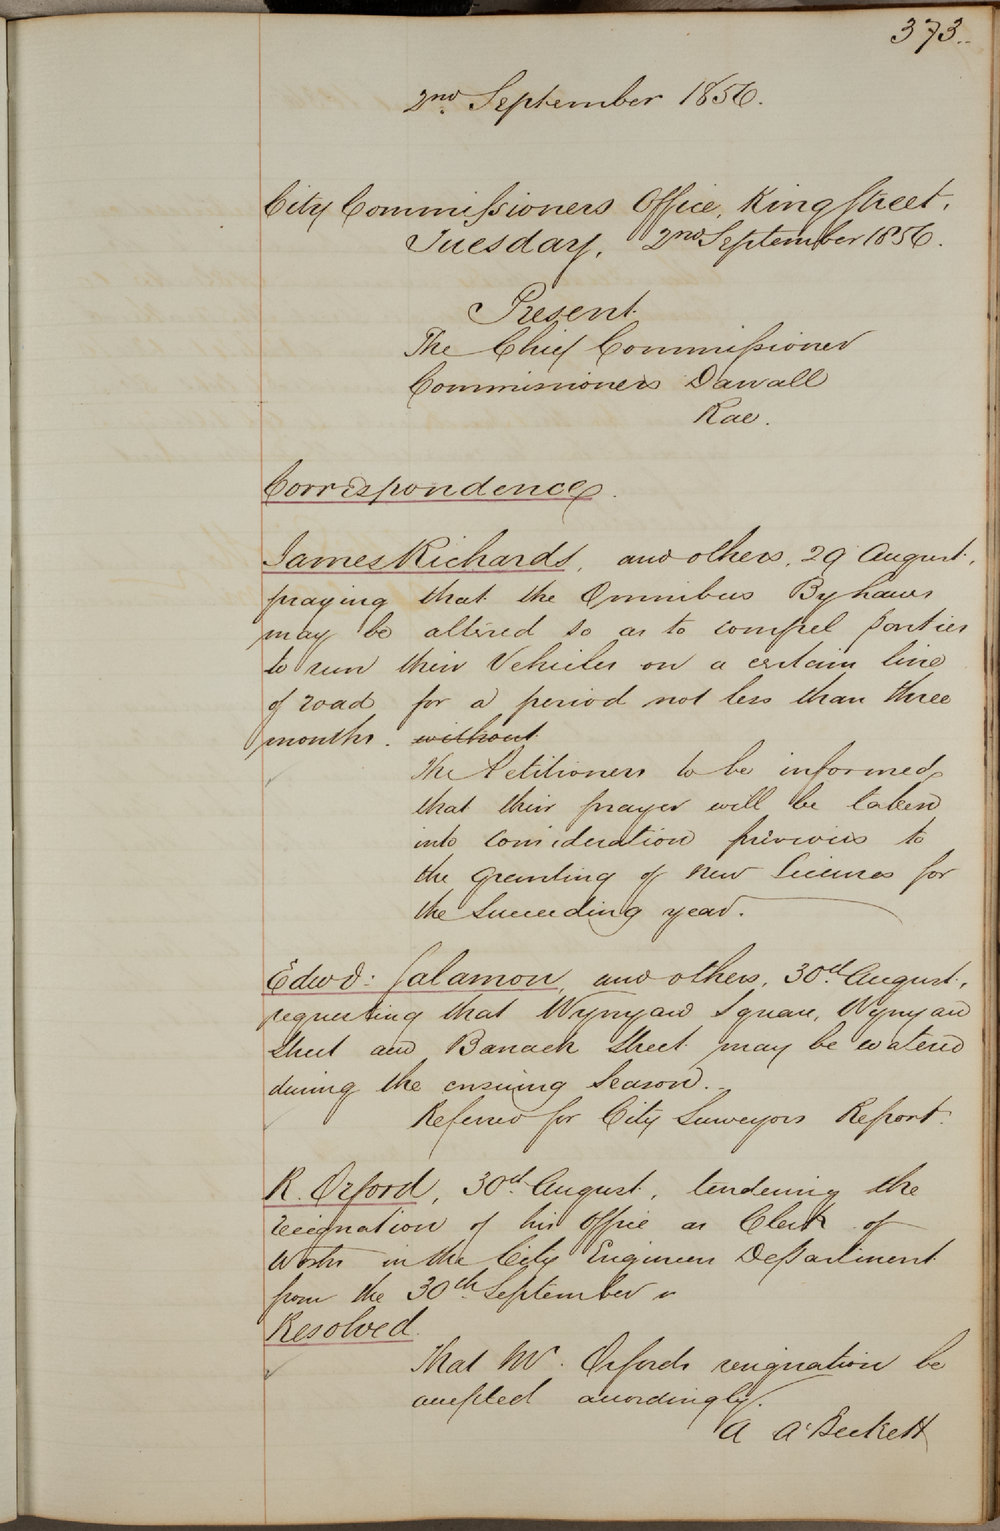 373.
2nd September 1856.
City Commissioners Office, King Street,
Tuesday, 2nd September 1856.
Present
The Chief Commissioner
Commissioners Darvall
Rae.
Correspondence.
James Richards, and others, 29 August,
praying that the Omnibus Byhaws
may be altered so as to compel parties
to run their Vehicles on a certain line
of road for a period not less than three
months. without
The Petitioners to be informed
that their prayer will be taken
into consideration previous to
the granting of new licenses for
the Succeeding year.
Edwd: Salamon, and others, 30th August,
requesting that Wynyard Square, Wynyard
Street and Barrack Street may be watered
during the ensuing Season.
Referred for City Surveyors Report.
R. Orford, 30th August, tendering the
resignation of his Office as Clerk of
Works in the City Engineers Department
from the 30th September
Resolved
That Mr. Orfords resignation be
accepted accordingly.
A A'Beckett